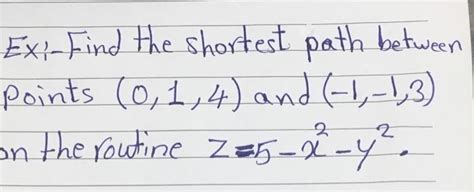 Ex:- Find the shortest path between
points (0,1,4) and (-1,-1,3)
on the routine z=5-x²-y².